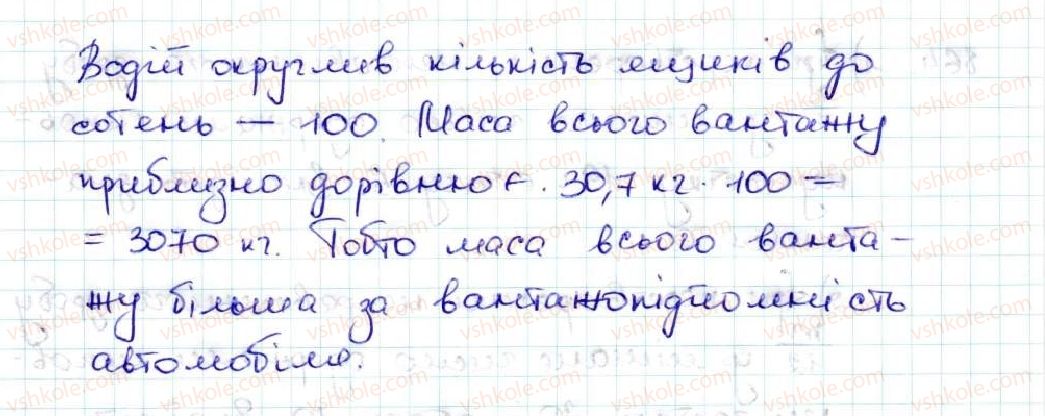 Водій округлив кількість ящиків до
сотень — 100. Маса всього вантажу
приблизно дорівнює. 30,7 кг · 100 =
= 3070 кг. Тобто маса всього ванта-
жу більша за вантажопідйомність
автомобіля.